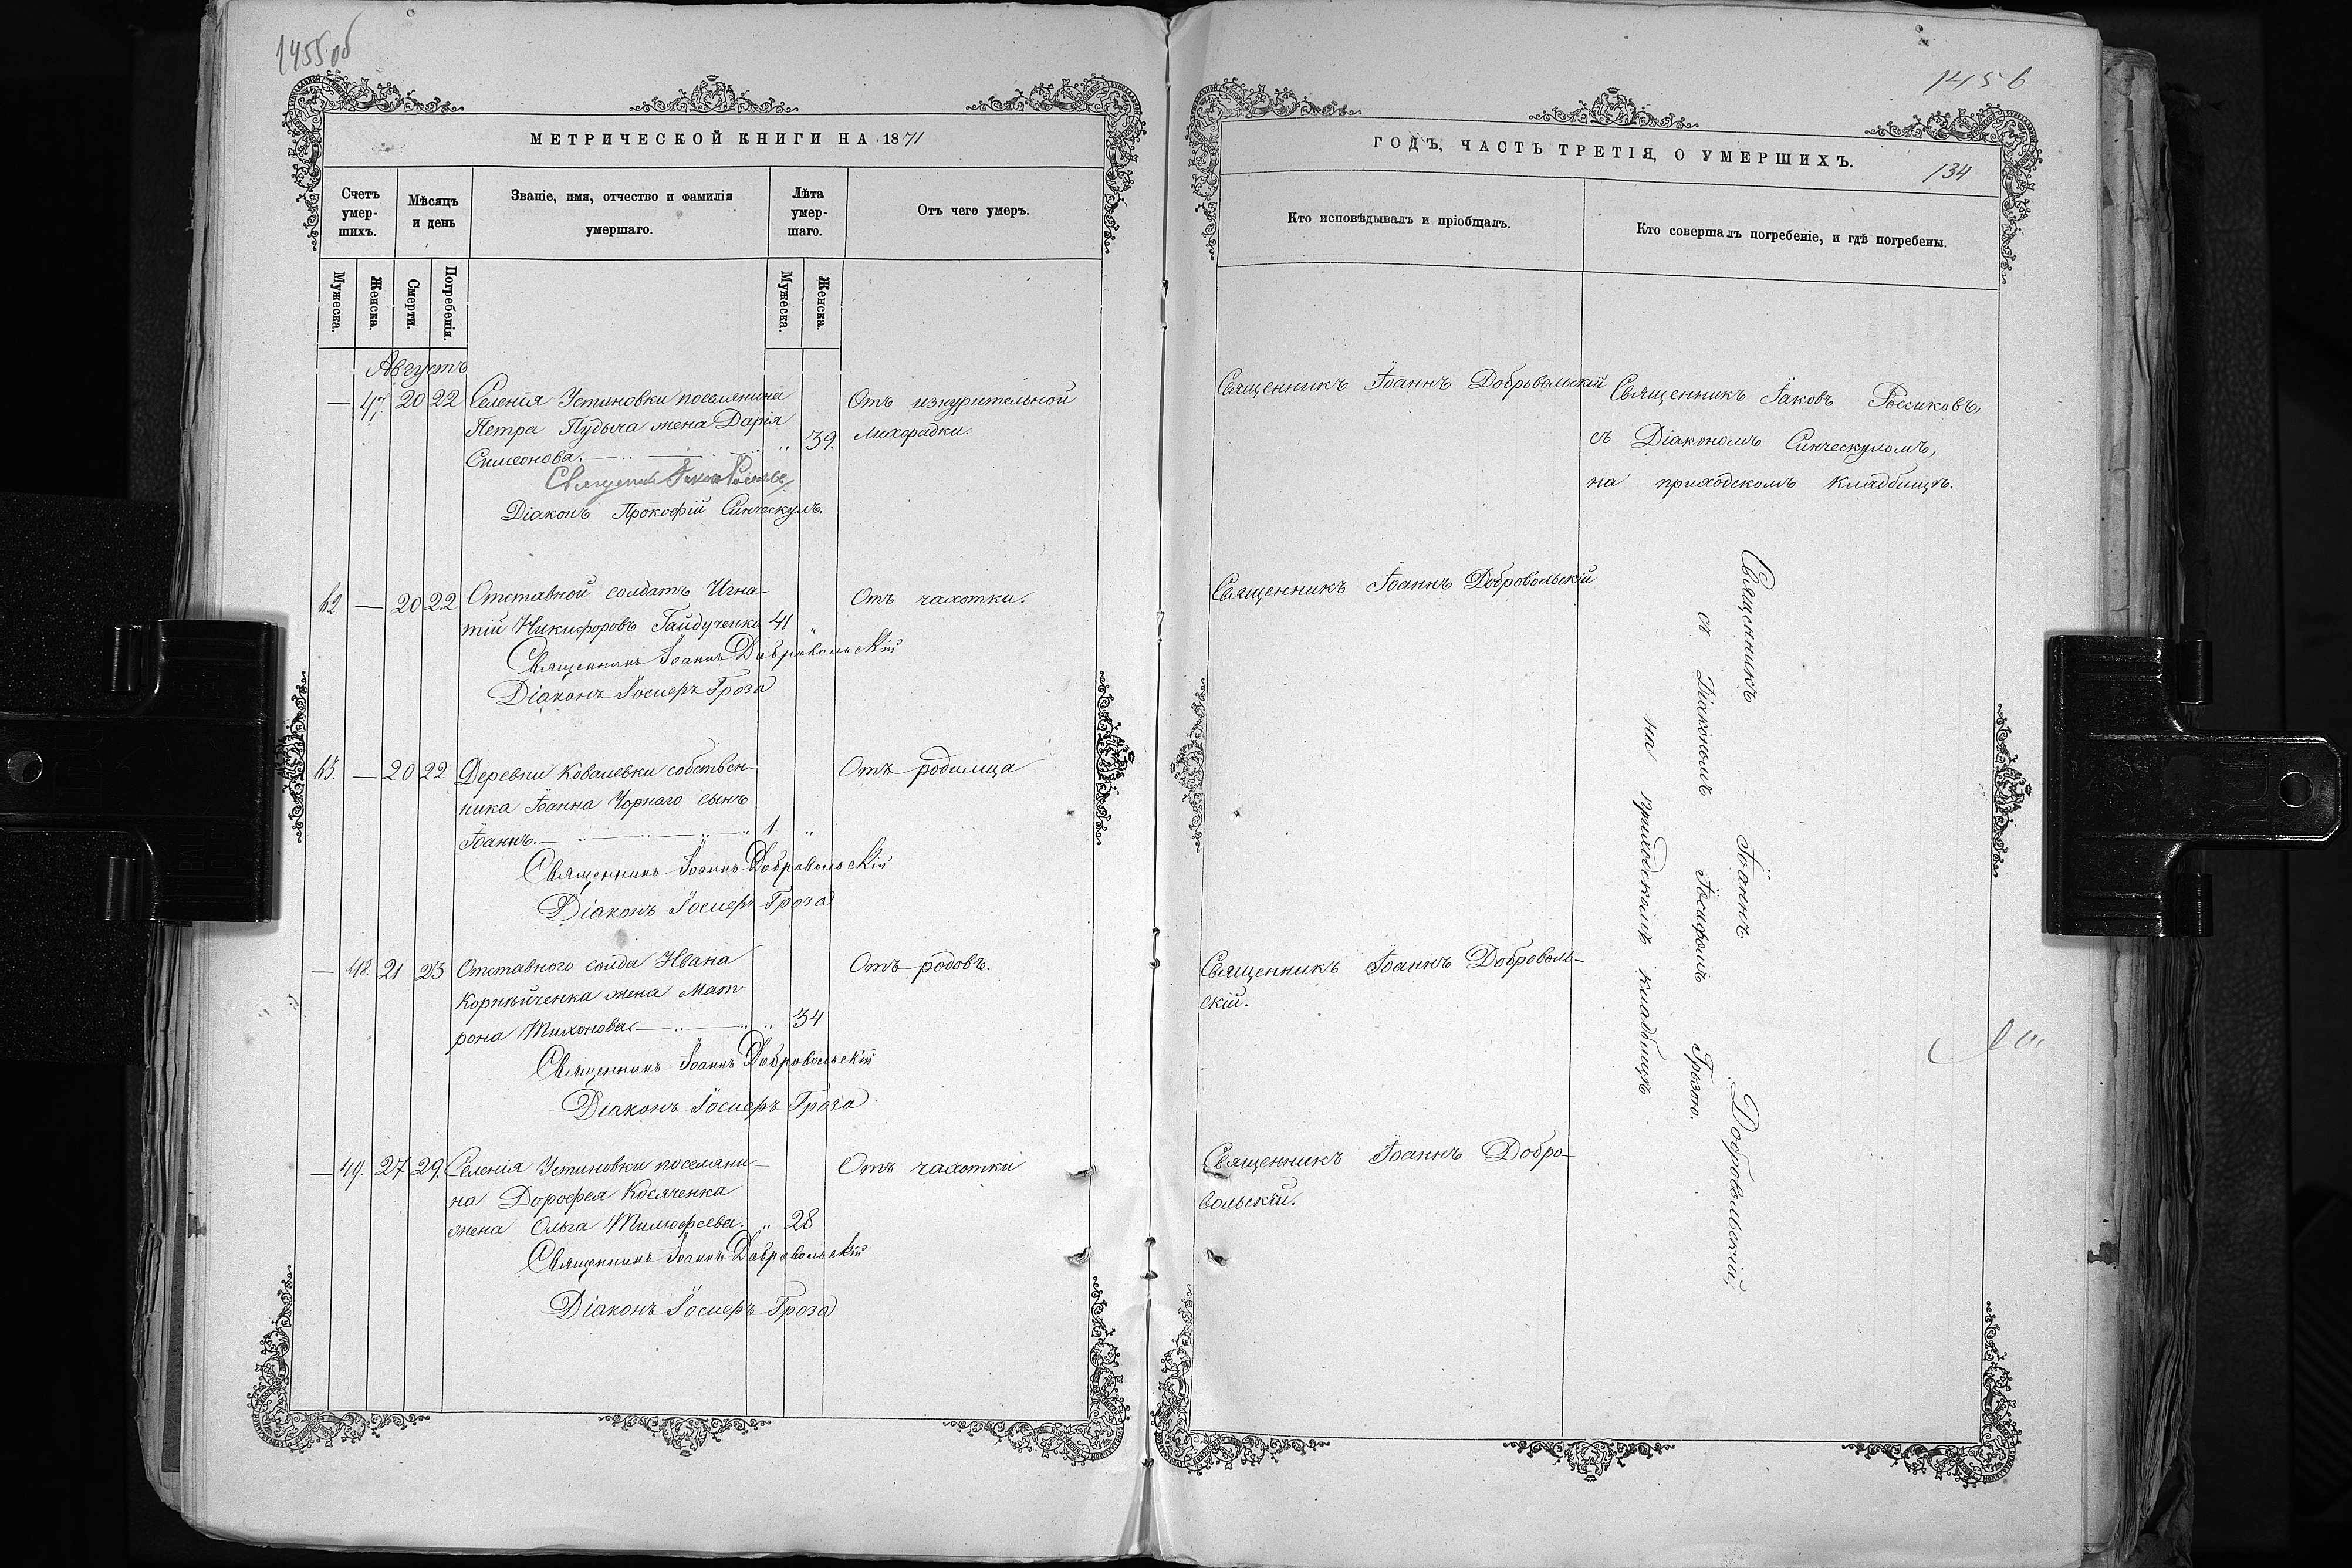 1455 об
МЕТРИЧЕСКОЙ КНИГИ НА 1871
Счетъ умер-шихъ.
Мѣсяцъ и день
Званіе, имя, отчество и фамилія умершаго.
Лѣта умер-шаго.
Отъ чего умеръ.
Мужеска.
Женска.
Смерти.
Погребенія.
Мужеска.
Женска.
Августъ
— 47. 20 22 Селенія Устиновки поселянина
Петра Пудыча жена Дарія
Симеонова. „ 39.
Отъ изнурительной
лихорадки.
Священникъ Іаковъ
Діаконъ Прокофій Синческулъ.
62 — 20 22 Отставной солдатъ Игна-
тій Никифоровъ Гайдученко 41 „
Отъ чахотки.
Священникъ Іоаннъ Добровольскій
Діаконъ Іосифъ Гроза
63. — 20 22 Деревни Ковалевки собствен-
ника Іоанна Чорнаго сынъ
Іоаннъ. 1 „
Отъ родимца
Священникъ Іоаннъ Добровольскій
Діаконъ Іосифъ Гроза
— 48. 21 23 Отставного солда Ивана
Корнѣйченка жена Мат-
рона Тихонова. „ 34
Отъ родовъ.
Священникъ Іоаннъ Добровольскій
Діаконъ Іосифъ Гроза
— 49. 27 29. Селенія Устиновки поселяни-
на Дорофея Косяченка
жена Ольга Тимофеева. „ 28
Отъ чахотки
Священникъ Іоаннъ Добровольскій
Діаконъ Іосифъ Гроза
1456
ГОДЪ, ЧАСТЬ ТРЕТІЯ, О УМЕРШИХЪ.
134
Кто исповѣдывалъ и пріобщалъ.
Кто совершалъ погребеніе, и гдѣ погребены.
Священникъ Іоаннъ Добровольскій
Священникъ Іаковъ Россиковъ,
съ Діакономъ Синческуломъ,
на приходскомъ кладбищѣ.
Священникъ Іоаннъ Добровольскій
Священникъ Іоаннъ Доброволь-
скій.
Священникъ Іоаннъ Добро-
вольскій.
Священникъ Іоаннъ Добровольскій,
съ Діакономъ Іосифомъ Грозою.
на приходскомъ кладбищѣ